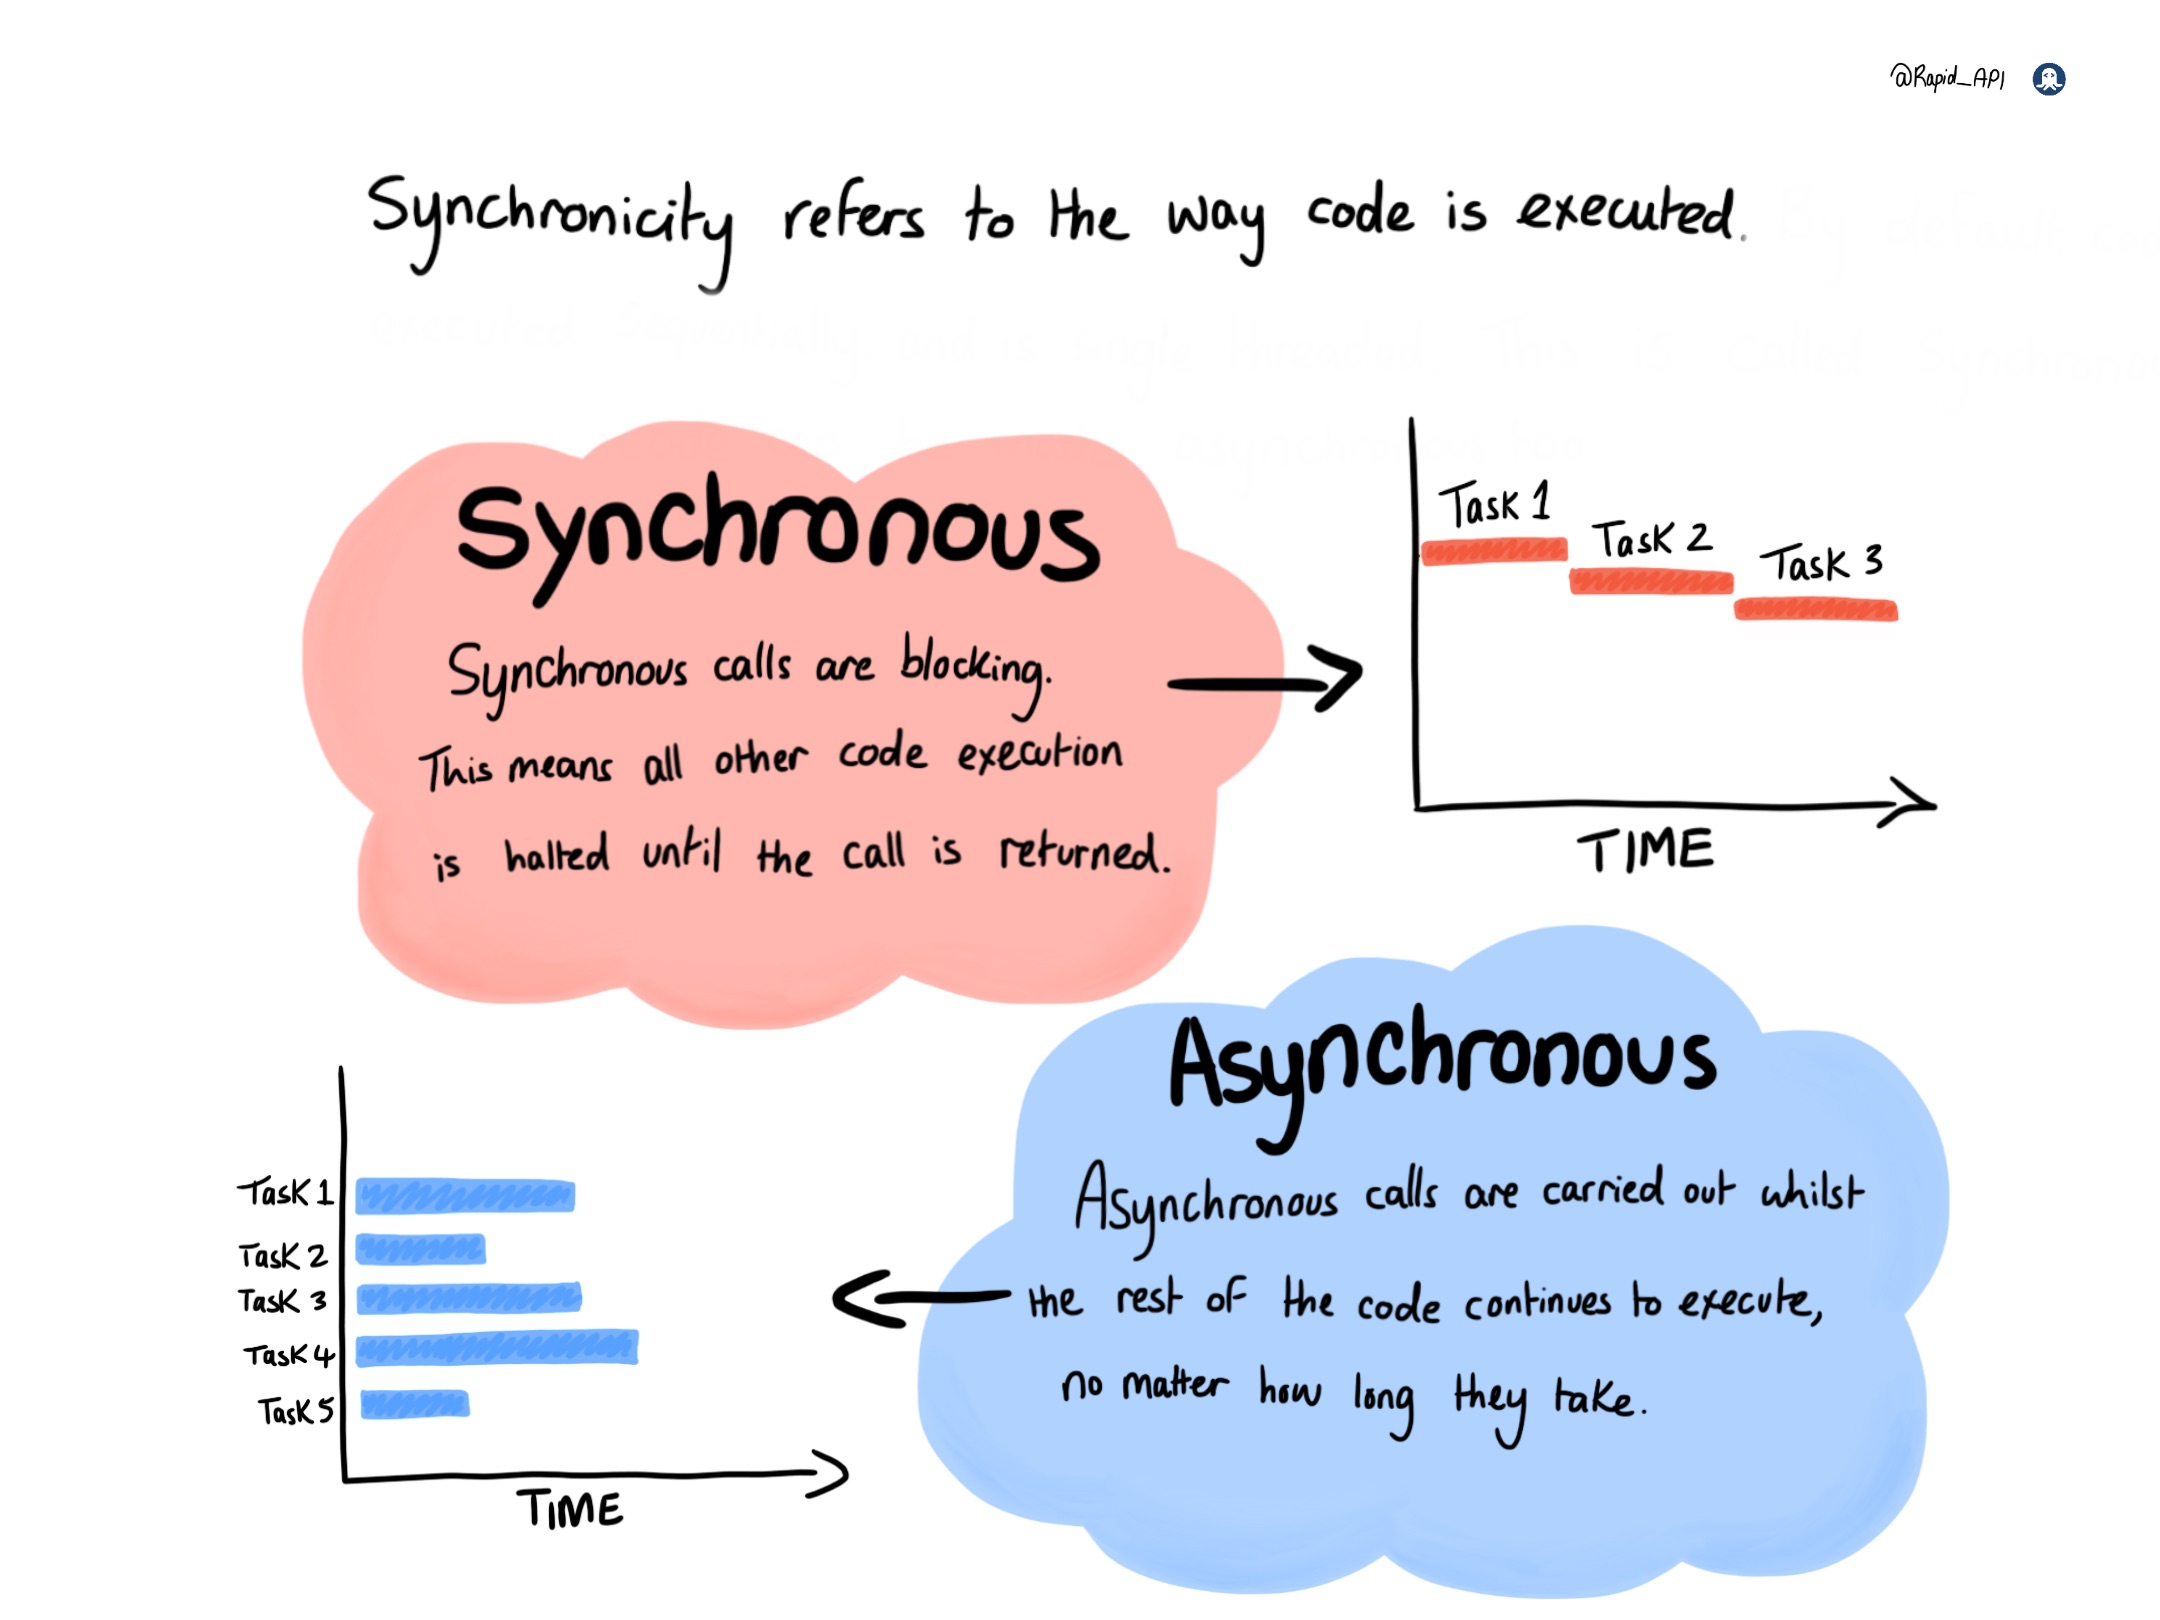 @Rapid_API
Synchronicity refers to the way code is executed.
Synchronous
Synchronous calls are blocking.
This means all other code execution
is halted until the call is returned.
Task 1
Task 2
Task 3
TIME
Asynchronous
Asynchronous calls are carried out whilst
the rest of the code continues to execute,
no matter how long they take.
Task 1
Task 2
Task 3
Task 4
Task 5
TIME